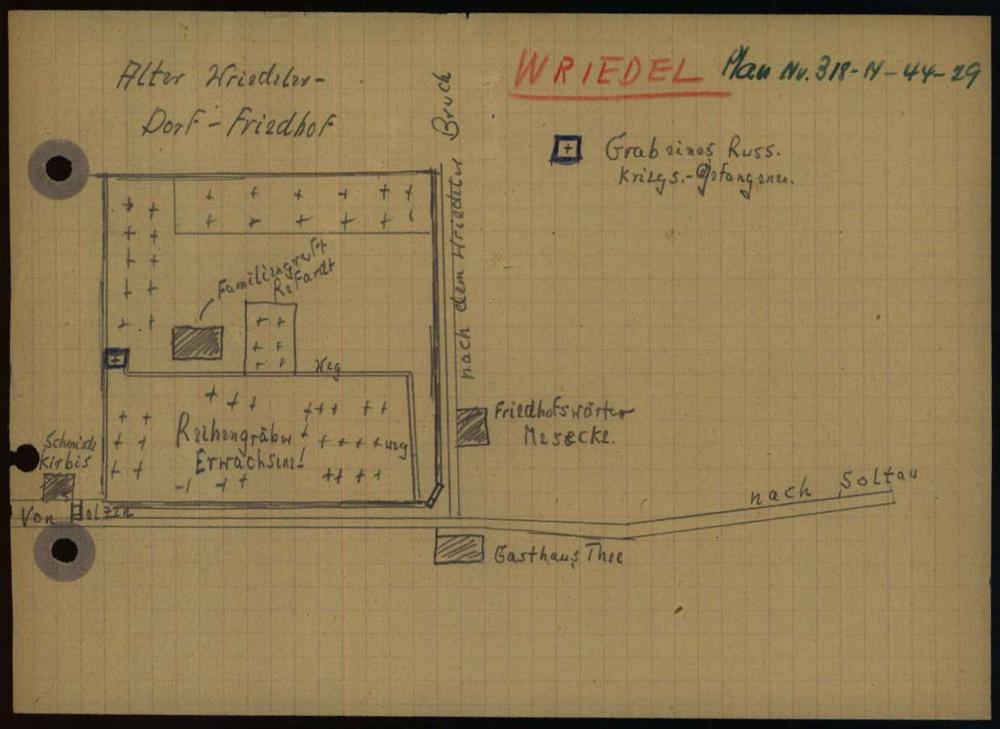 WRIEDEL Plan Nr. 318-N-44-29
Alter Wriedeler-
Dorf-Friedhof
nach dem Wriedeler Bruch
Grab eines Russ.
Kriegs.-Gefangenen.
Familiengruft
Refardt
Weg
Reihengräber
Erwachsene!
Weg
Friedhofswärter
Mesecke.
Schmiede
Kirbis
nach Soltau
Von
Gasthaus Thee